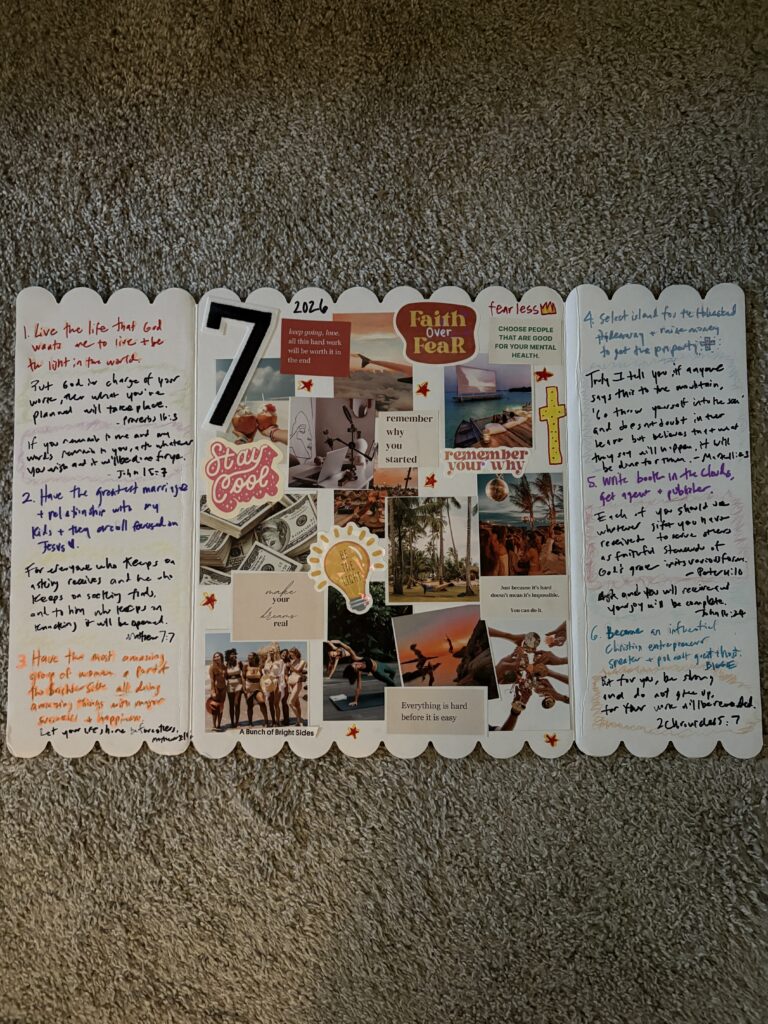 1. Live the life that God
wants me to live + be
the light in the world.
Put God in charge of your
work, then what you've
planned will take place.
- Proverbs 16:3
If you remain in me and my
words remain in you, ask whatever
you wish and it will be done for you.
John 15:7
2. Have the greatest marriage
+ relationship with my
kids + they are all focused on
Jesus
For everyone who keeps on
asking receives and he who
keeps on seeking finds,
and to him who keeps on
knocking it will be opened.
Matthew 7:7
3. Have the most amazing
group of women a part of
the Side all doing
amazing things with major
success + happiness.
Let your life shine before others,
7
2026
keep going, love.
all this hard work
will be worth it in
the end
Faith
over
Fear
fearless
CHOOSE PEOPLE
THAT ARE GOOD
FOR YOUR MENTAL
HEALTH.
t
remember
why
you
started
remember
your why
Stay
Cool
BE THE
LIGHT
make
your
dreams
real
Just because it's hard
doesn't mean it's impossible.
You can do it.
Everything is hard
before it is easy
A Bunch of Bright Sides
4. Select island for the
hideaway + raise money
to get the property
Truly I tell you, if anyone
says this to the mountain,
'Go throw yourself into the sea'
and does not doubt in their
heart but believes that what
they say will happen, it will
be done for them. - Mark 11:23
5. Write book in the Clouds,
get agent + publisher.
Each of you should use
whatever gift you have
received to serve others
as faithful stewards of
God's grace in its various forms.
- Peter 4:10
Ask and you will receive and
your joy will be complete.
- John 16:24
6. Become an influential
Christian entrepreneur
speaker + podcast guest + host.
But for you, be strong
and do not give up,
for your work will be rewarded.
2 Chronicles 15:7